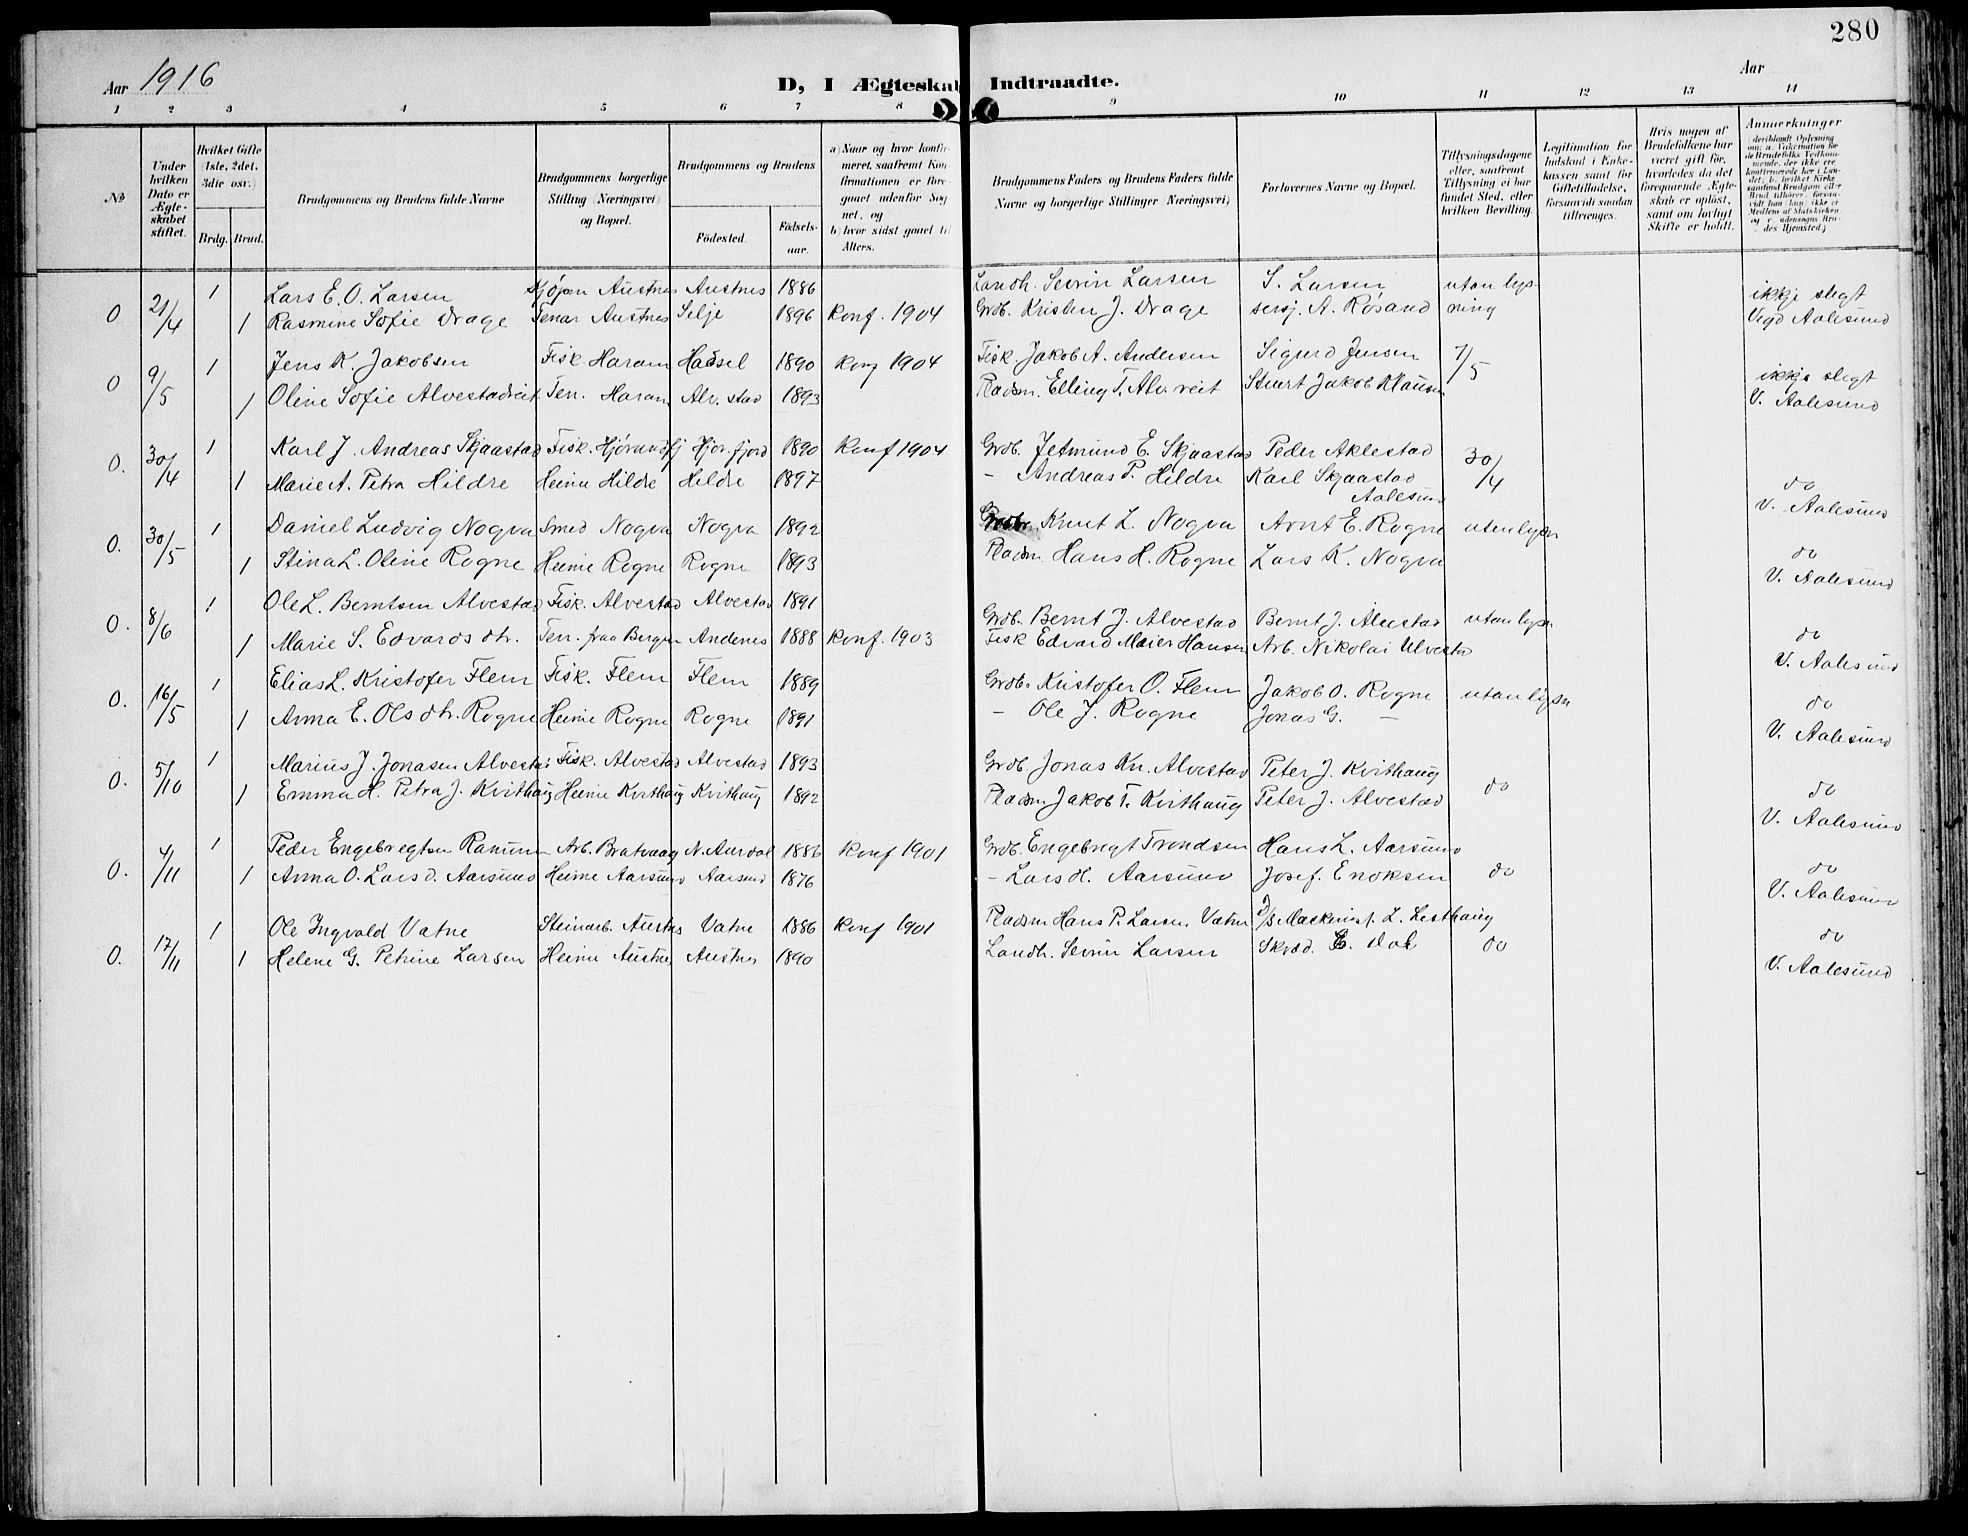 280
Aar 1916
D, I Ægteskab Indtraadte.
Aar
1 2 3 4 5 6 7 8 9 10 11 12 13 14
No
Under hvilken Dato er Ægteskabet stiftet.
Hvilket Gifte (1ste, 2det, 3die osv.)
Brdg. Brud.
Brudgommens og Brudens fulde Navne
Brudgommens borgerlige Stilling (Næringsvei) og Bopæl.
Brudgommens og Brudens
Födested.
Födselsaar.
a) Naar og hvor konfirmeret, saafremt Konfirmationen er foregaaet udenfor Sognet, og
b) hvor sidst gaaet til Alters.
Brudgommens Faders og Brudens Faders fulde Navne og borgerlige Stillinger (Næringsvei)
Forlovernes Navne og Bopæl.
Tillysningsdagene eller, saafremt Tillysning ei har fundet Sted, efter hvilken Bevilling.
Legitimation for Indskud i Enkekassen samt for Giftetilladelse, forsaavidt saadan tiltrænges.
Hvis nogen af Brudefolkene har været gift för, hvorledes da det foregaaende Ægteskab er oplöst, samt om lovligt Skifte er holdt.
Anmærkninger
0 21/4 1 Lars E. O. Larsen Austnes Austnes 1886 Landh. Sevrin Larsen S. Larsen utan lys- ikkje slegt
1 Rasmine Sofie Drage Tenar Austnes Selje 1896 Konf. 1904 Grdb. Kristen J. Drage sersj. A. Røsand ning Vigd Aalesund
0 9/5 1 Jens K. Jakobsen Fisk. Haram Hadsel 1890 Konf 1904 Fisk. Jakob A. Andersen Sigurd Jensen 7/5 ikkje slegt
1 Oline Sofie Alvestadveit Ten. Haram Alv.stad 1893 Pladsm. Elling T. Alv.veit Stuert Jakob Klausen V. Aalesund
0. 30/4 1 Karl J. Andreas Skjaastad Fisk. Hjørundfj Hjør.fjord 1890 Konf 1904 Grdb. Jetmund E. Skjaastad Peder Aklestad 30/4
1 Marie A. Petra Hildre Heime Hildre Hildre 1897 - Andreas P. Hildre Karl Skjaastad Aalesund do V. Aalesund
0. 30/5 1 Daniel Ludvig Nogva Smed Nogva Nogva 1892 Knut L. Nogva Arnt E. Rogne utan lysn
1 Stina L. Oline Rogne Heime Rogne Rogne 1893 Pladsm. Hans H. Rogne Lars K. Nogva do V. Aalesund
0. 8/6 1 Ole L. Berntsen Alvestad Fisk. Alvestad Alvestad 1891 Grdb. Bernt J. Alvestad Bernt J. Alvestad utan lysn
1 Marie S. Edvards dtr. Ten. fraa Bergen Andenes 1888 Konf. 1903 Fisk Edvard Meier Hansen Arb. Nikolai Ulvestad do V. Aalesund
0. 16/5 1 Elias L. Kristofer Flem Fisk. Flem Flem 1889 Grdb. Kristofer O. Flem Jakob O. Rogne utan lysn
1 Anna E. Ols dtr. Rogne Heime Rogne Rogne 1891 - Ole J. Rogne Jonas G. - do V. Aalesund
0. 5/10 1 Marius J. Jonasen Alvestad Fisk. Alvestad Alvestad 1893 Grdb. Jonas Kn. Alvestad Peter J. Kvithaug
1 Emma H. Petra J. Kvithaug Heime Kvithaug Kvithaug 1892 Pladsm Jakob T. Kvithaug Peter J. Alvestad do do V. Aalesund
0. 4/11 1 Peder Engebregtsen Ranum Arb. Bratvaag N. Aurdal 1886 Konf 1901 Grdb. Engebregt Trondsen Hans L. Aarsund
1 Anna O. Lars d. Aarsund Heime Aarsund Aarsund 1876 - Lars H. Aarsund Josef. Enoksen do do V. Aalesund
0. 17/11 1 Ole Ingvald Vatne Steinarb. Austnes Vatne 1886 Konf 1901 Pladsm Hans P. Larsen Vatne Maskinist L. Lesthaug
1 Helene G. Petrine Larsen Heime Austnes Austnes 1890 Landh. Sevrin Larsen Skræd. E. Dal do do V. Aalesund